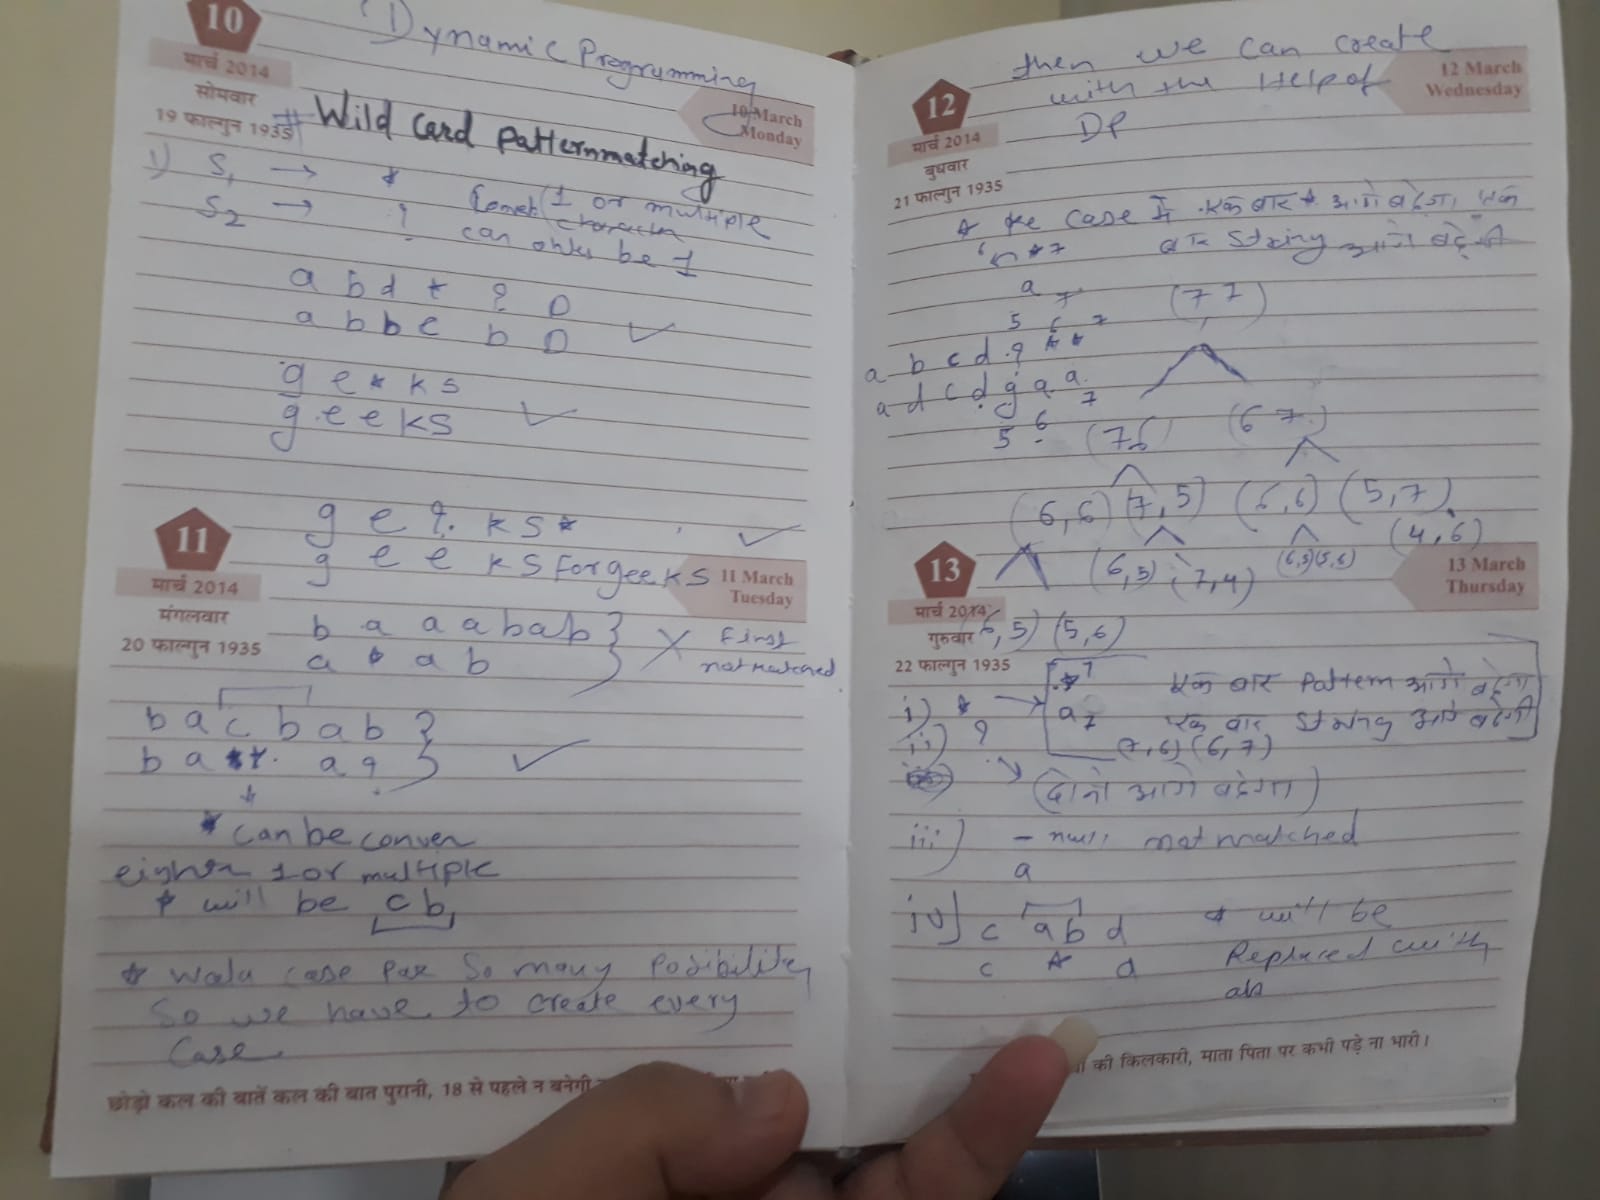 10
मार्च 2014
सोमवार
19 फाल्गुन 1935
10 March
Monday
Dynamic Programming
# Wild Card Patternmatching
1) S1 → * (1 or multiple
S2 → ? can only be 1
a b d * ? D
a b b c b D ✓
g e * k s
g e e k s ✓
g e ? k s * ✓
g e e k s F o r g e e k s
11
मार्च 2014
मंगलवार
20 फाल्गुन 1935
11 March
Tuesday
b a a a b a b } X First
a * a b } not matched
b a c b a b }
b a * * a ? } ✓
* can be conver
either 1 or multiple
* will be cb
* wala case par so many posibility
so we have to create every
case
छोड़ो कल की बातें कल की बात पुरानी, 18 से पहले न बनेगी
12
मार्च 2014
बुधवार
21 फाल्गुन 1935
12 March
Wednesday
then we can create
with the Help of
DP
* के case में एक बार * आगे बढ़ेगा, एक
बार string आगे बढ़ेगी
a 7 (7 7)
5 6 7
a b c d ? * *
a d c d g a a
5 6 7
(7 6) (6 7)
(6,6) (7,5) (6,6) (5,7)
(6,5) (7,4) (6,5) (5,6) (4,6)
13
मार्च 2014
गुरुवार
22 फाल्गुन 1935
13 March
Thursday
(6,5) (5,6)
i) * → * 7 एक बार Pattern आगे बढ़ेगा
a 7 एक बार string आगे बढ़ेगी
(7,6) (6,7)
ii) ? → (दोनो आगे बढ़ेगा)
iii) - null not matched
a
iv) c a b d * will be
c * d Replaced with
ab
की किलकारी, माता पिता पर कभी पड़े ना भारी।